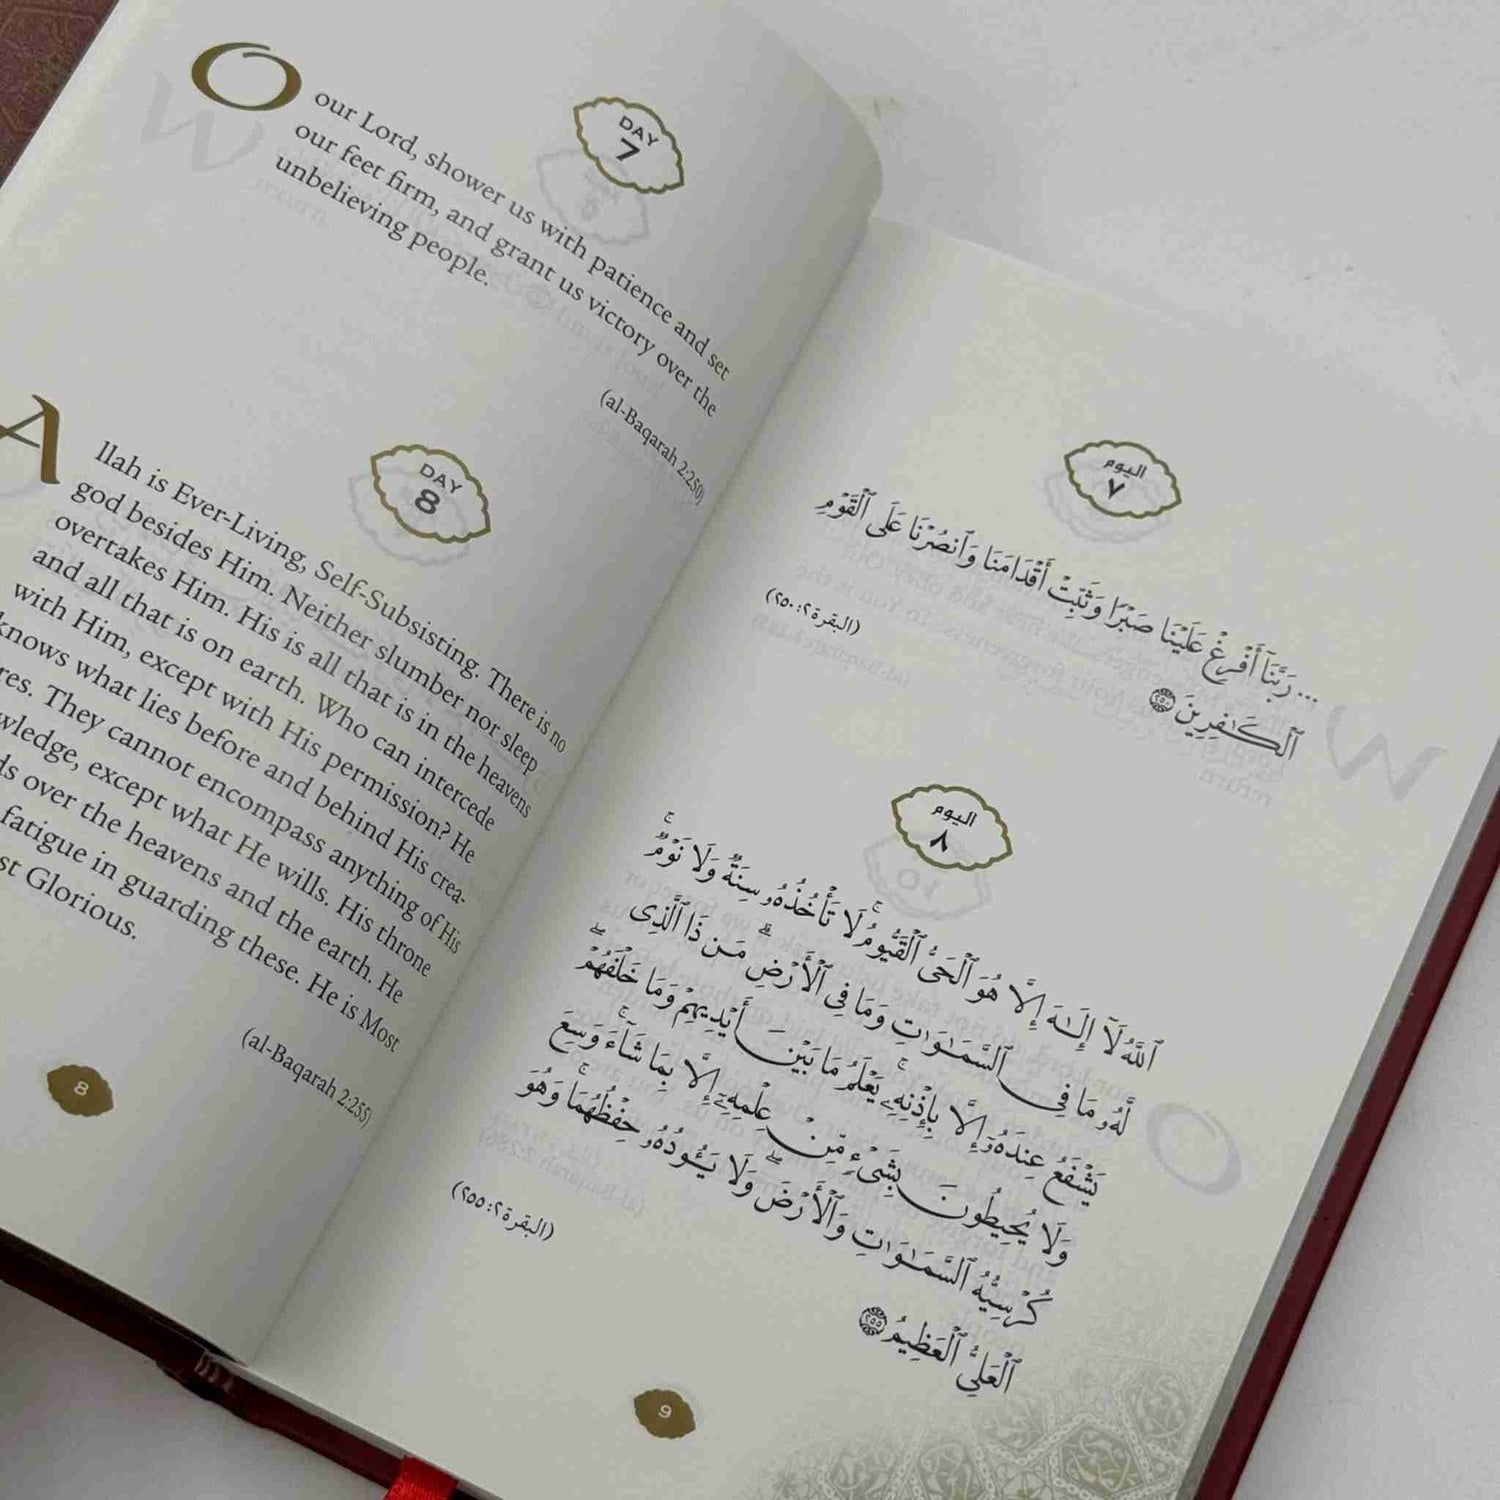 DAY
7
O our Lord, shower us with patience and set
our feet firm, and grant us victory over the
unbelieving people.
(al-Baqarah 2:250)
DAY
8
Allah is Ever-Living, Self-Subsisting. There is no
god besides Him. Neither slumber nor sleep
overtakes Him. His is all that is in the heavens
and all that is on earth. Who can intercede
with Him, except with His permission? He
knows what lies before and behind His crea-
res. They cannot encompass anything of His
wledge, except what He wills. His throne
ds over the heavens and the earth. He
fatigue in guarding these. He is Most
st Glorious.
(al-Baqarah 2:255)
8
اليوم
٧
... رَبَّنَآ أَفْرِغْ عَلَيْنَا صَبْرًا وَثَبِّتْ أَقْدَامَنَا وَٱنصُرْنَا عَلَى ٱلْقَوْمِ
ٱلْكَـٰفِرِينَ ٢٥٠
(البقرة ٢: ٢٥٠)
اليوم
٨
ٱللَّهُ لَآ إِلَـٰهَ إِلَّا هُوَ ٱلْحَىُّ ٱلْقَيُّومُ ۚ لَا تَأْخُذُهُۥ سِنَةٌ وَلَا نَوْمٌ ۚ
لَّهُۥ مَا فِى ٱلسَّمَـٰوَٰتِ وَمَا فِى ٱلْأَرْضِ ۗ مَن ذَا ٱلَّذِى
يَشْفَعُ عِندَهُۥٓ إِلَّا بِإِذْنِهِۦ ۚ يَعْلَمُ مَا بَيْنَ أَيْدِيهِمْ وَمَا خَلْفَهُمْ ۖ
وَلَا يُحِيطُونَ بِشَىْءٍ مِّنْ عِلْمِهِۦٓ إِلَّا بِمَا شَآءَ ۚ وَسِعَ
كُرْسِيُّهُ ٱلسَّمَـٰوَٰتِ وَٱلْأَرْضَ ۖ وَلَا يَـُٔودُهُۥ حِفْظُهُمَا ۚ وَهُوَ
ٱلْعَلِىُّ ٱلْعَظِيمُ ٢٥٥
(البقرة ٢: ٢٥٥)
9